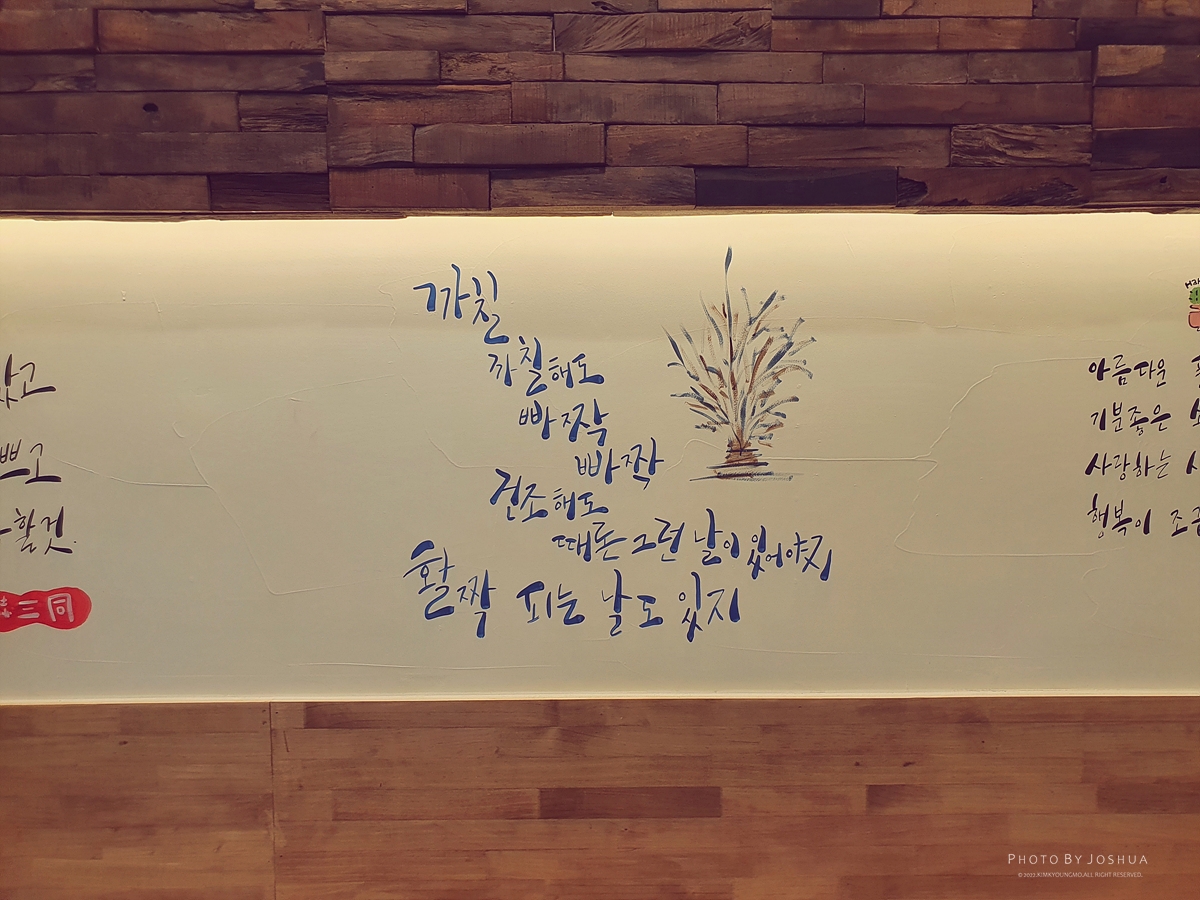 고
쁘고
할것.
三同
까칠
까칠해도
빠짝
빠짝
건조해도
때론 그런 날이 있어야지
활짝 피는 날도 있지
아름다운
기분좋은
사랑하는
행복이 조금
PHOTO BY JOSHUA
© 2022.KIMKYOUNGMO.ALL RIGHT RESERVED.